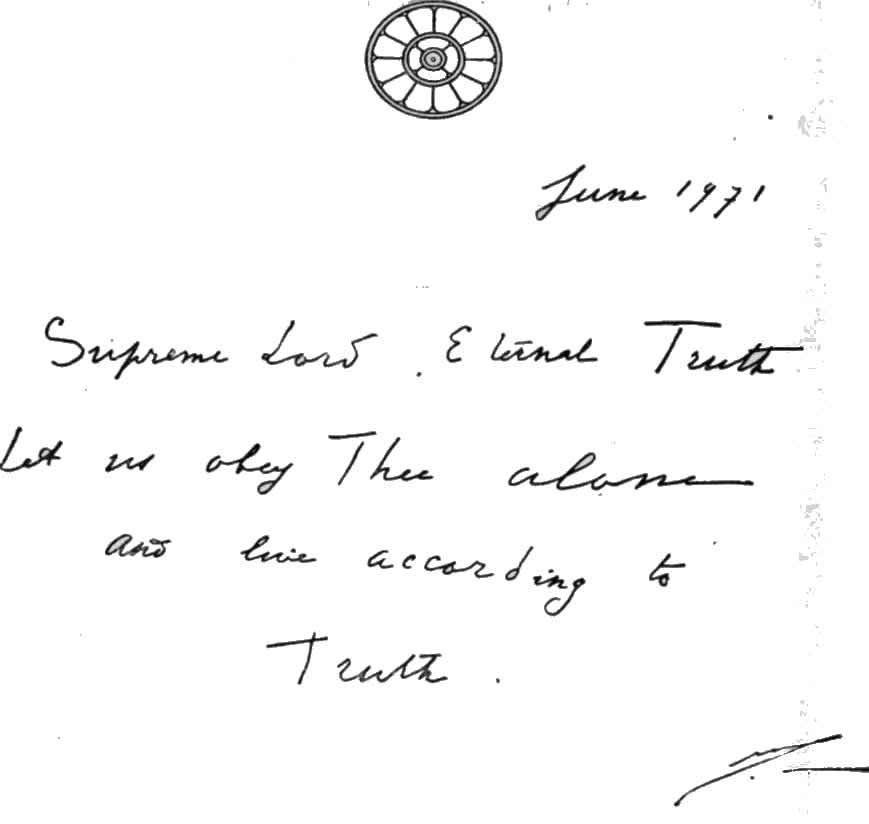 June 1971
Supreme Lord, Eternal Truth
Let us obey Thee alone
and live according to
Truth.